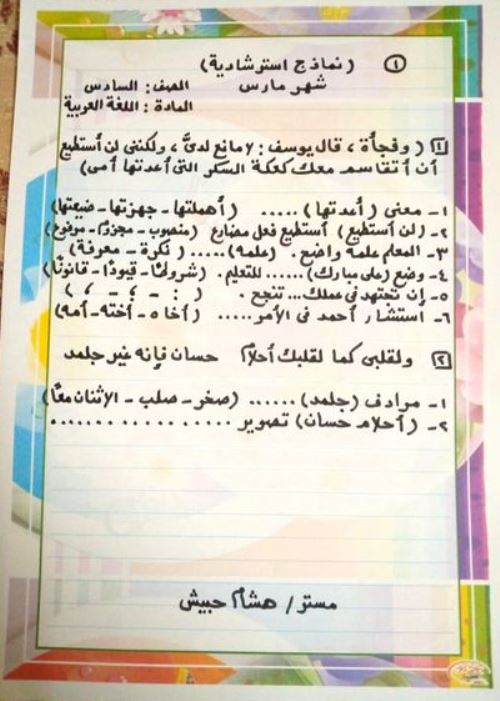 ١ (نماذج استرشادية)
شهر مارس الصف: السادس
المادة: اللغة العربية
١ (وفجأة، قال يوسف: لا مانع لديَّ، ولكننى لن أستطيع
أن أتقاسم معك كعكة السكر التى أعدتها أمى)
١- معنى (أعدتها) ..... (أهملتها - جهزتها - ضيعتها)
٢- (لن أستطيع) أستطيع فعل مضارع (منصوب - مجزوم - مرفوع)
٣- المعلم علمه واضح. (علمه) ..... (نكرة - معرفة)
٤- وضع (على مبارك) ...... للتعليم. (شروطًا - قيودًا - قانونًا)
٥- إن تجتهد فى عملك ... تنجح. ( : - ؛ - ، )
٦- استشار أحمد فى الأمر ..... (أخاه - أخته - أمه)
٢ ولقلبى كما لقلبك أحلام حسان فإنه غير جلمد
١- مرادف (جلمد) ...... (صخر - صلب - الإثنان معًا)
٢- (أحلام حسان) تصوير ..................
مستر/ هشام حبيش